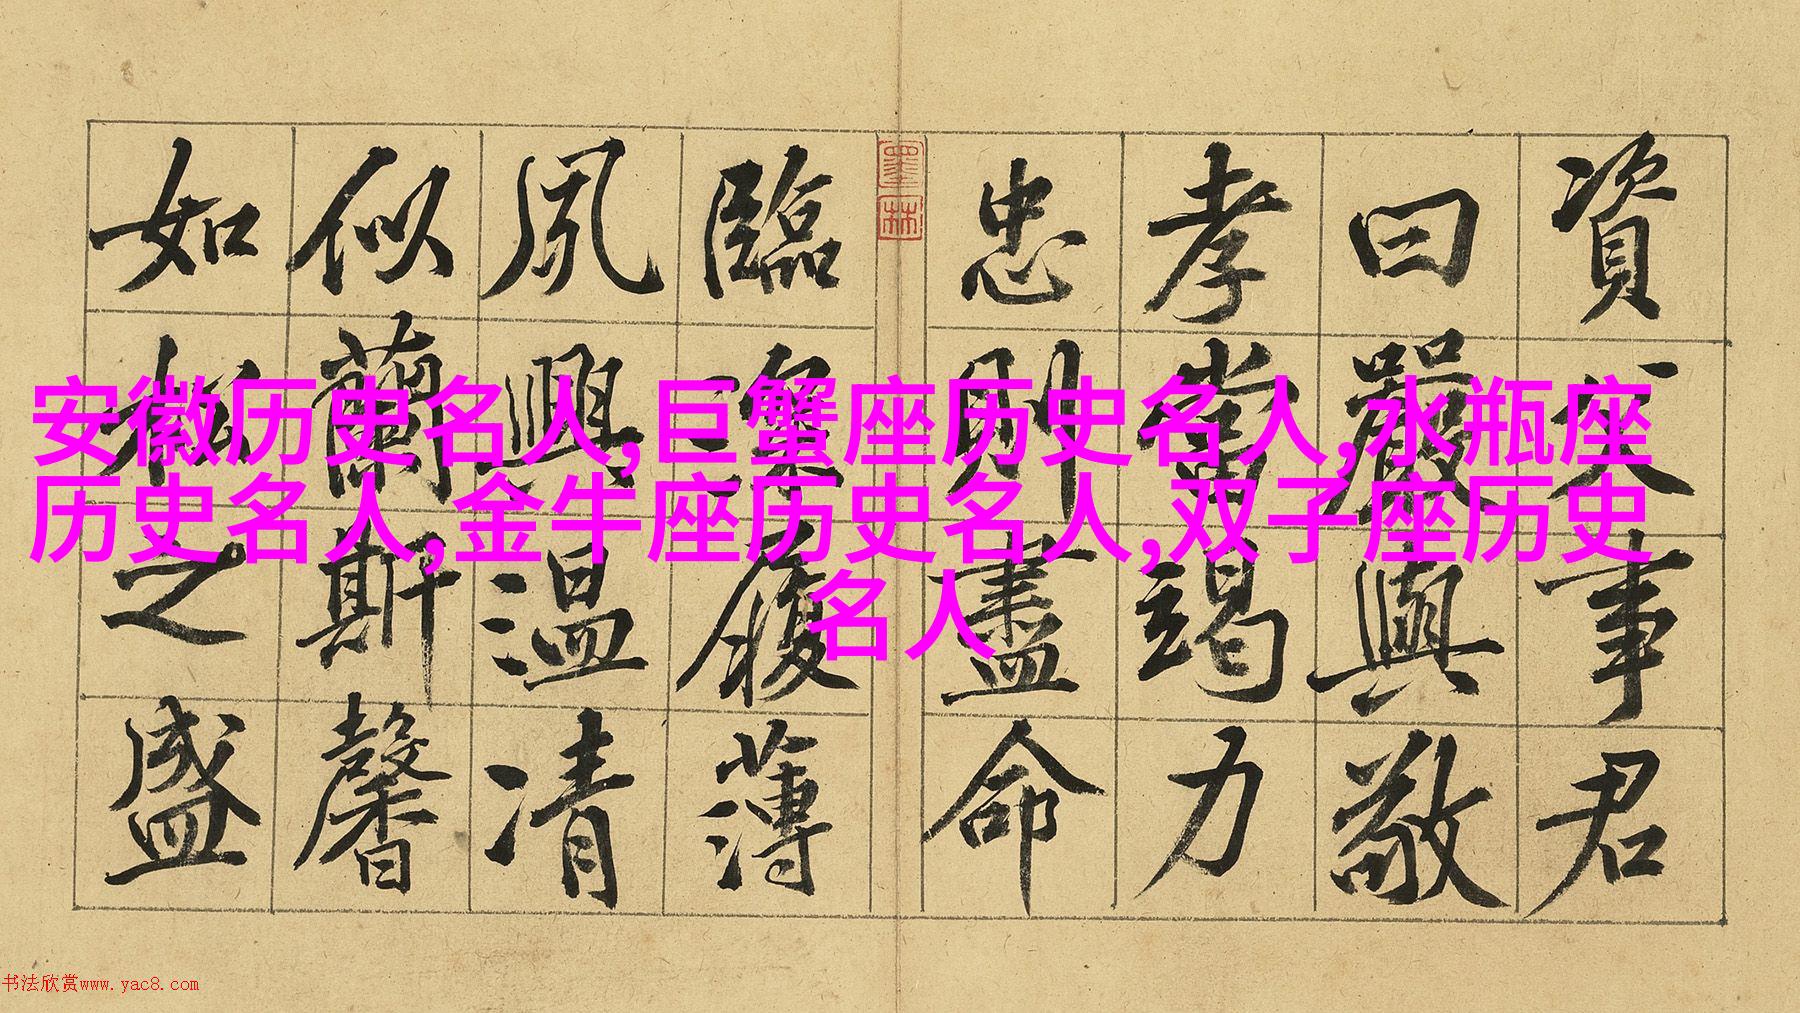 資父事君
曰嚴與敬
孝當竭力
忠則盡命
臨深履薄
夙興溫凊
似蘭斯馨
如松之盛
墨林
安徽历史名人,巨蟹座历史名人,水瓶座
历史名人,金牛座历史名人,双子座历史
名人
书法欣赏www.yac8.com